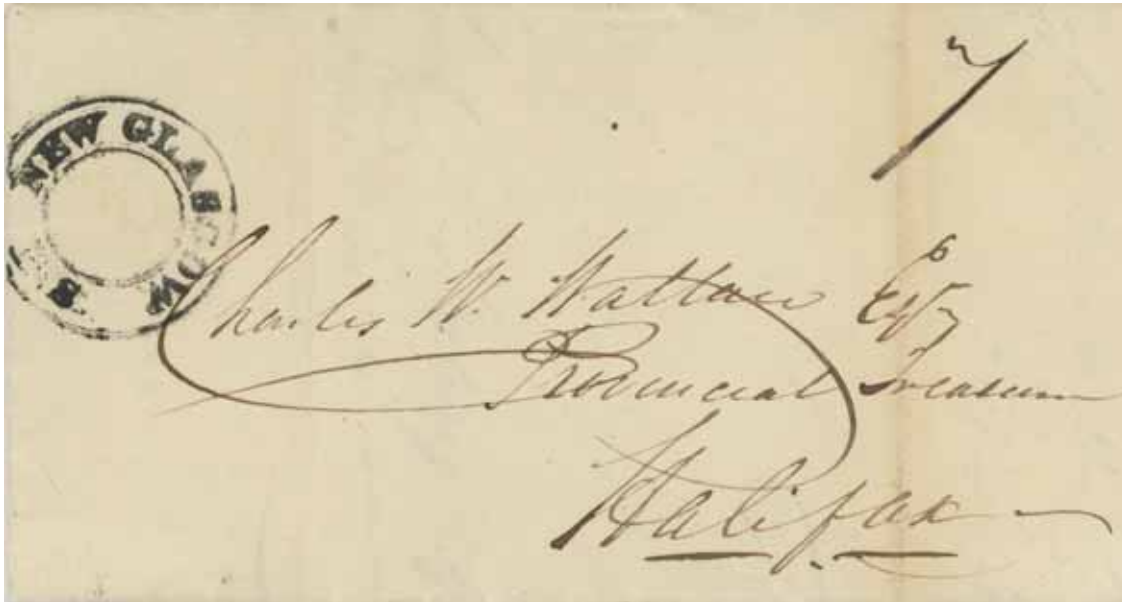 7
NEW GLASGOW
Charles W. Wallace Esqr
Provincial Treasurer
Halifax